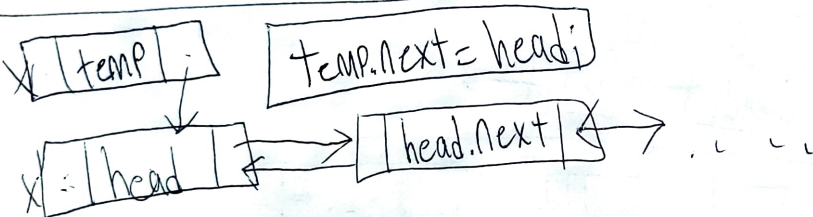 temp
temp.next = head;
head
head.next
....